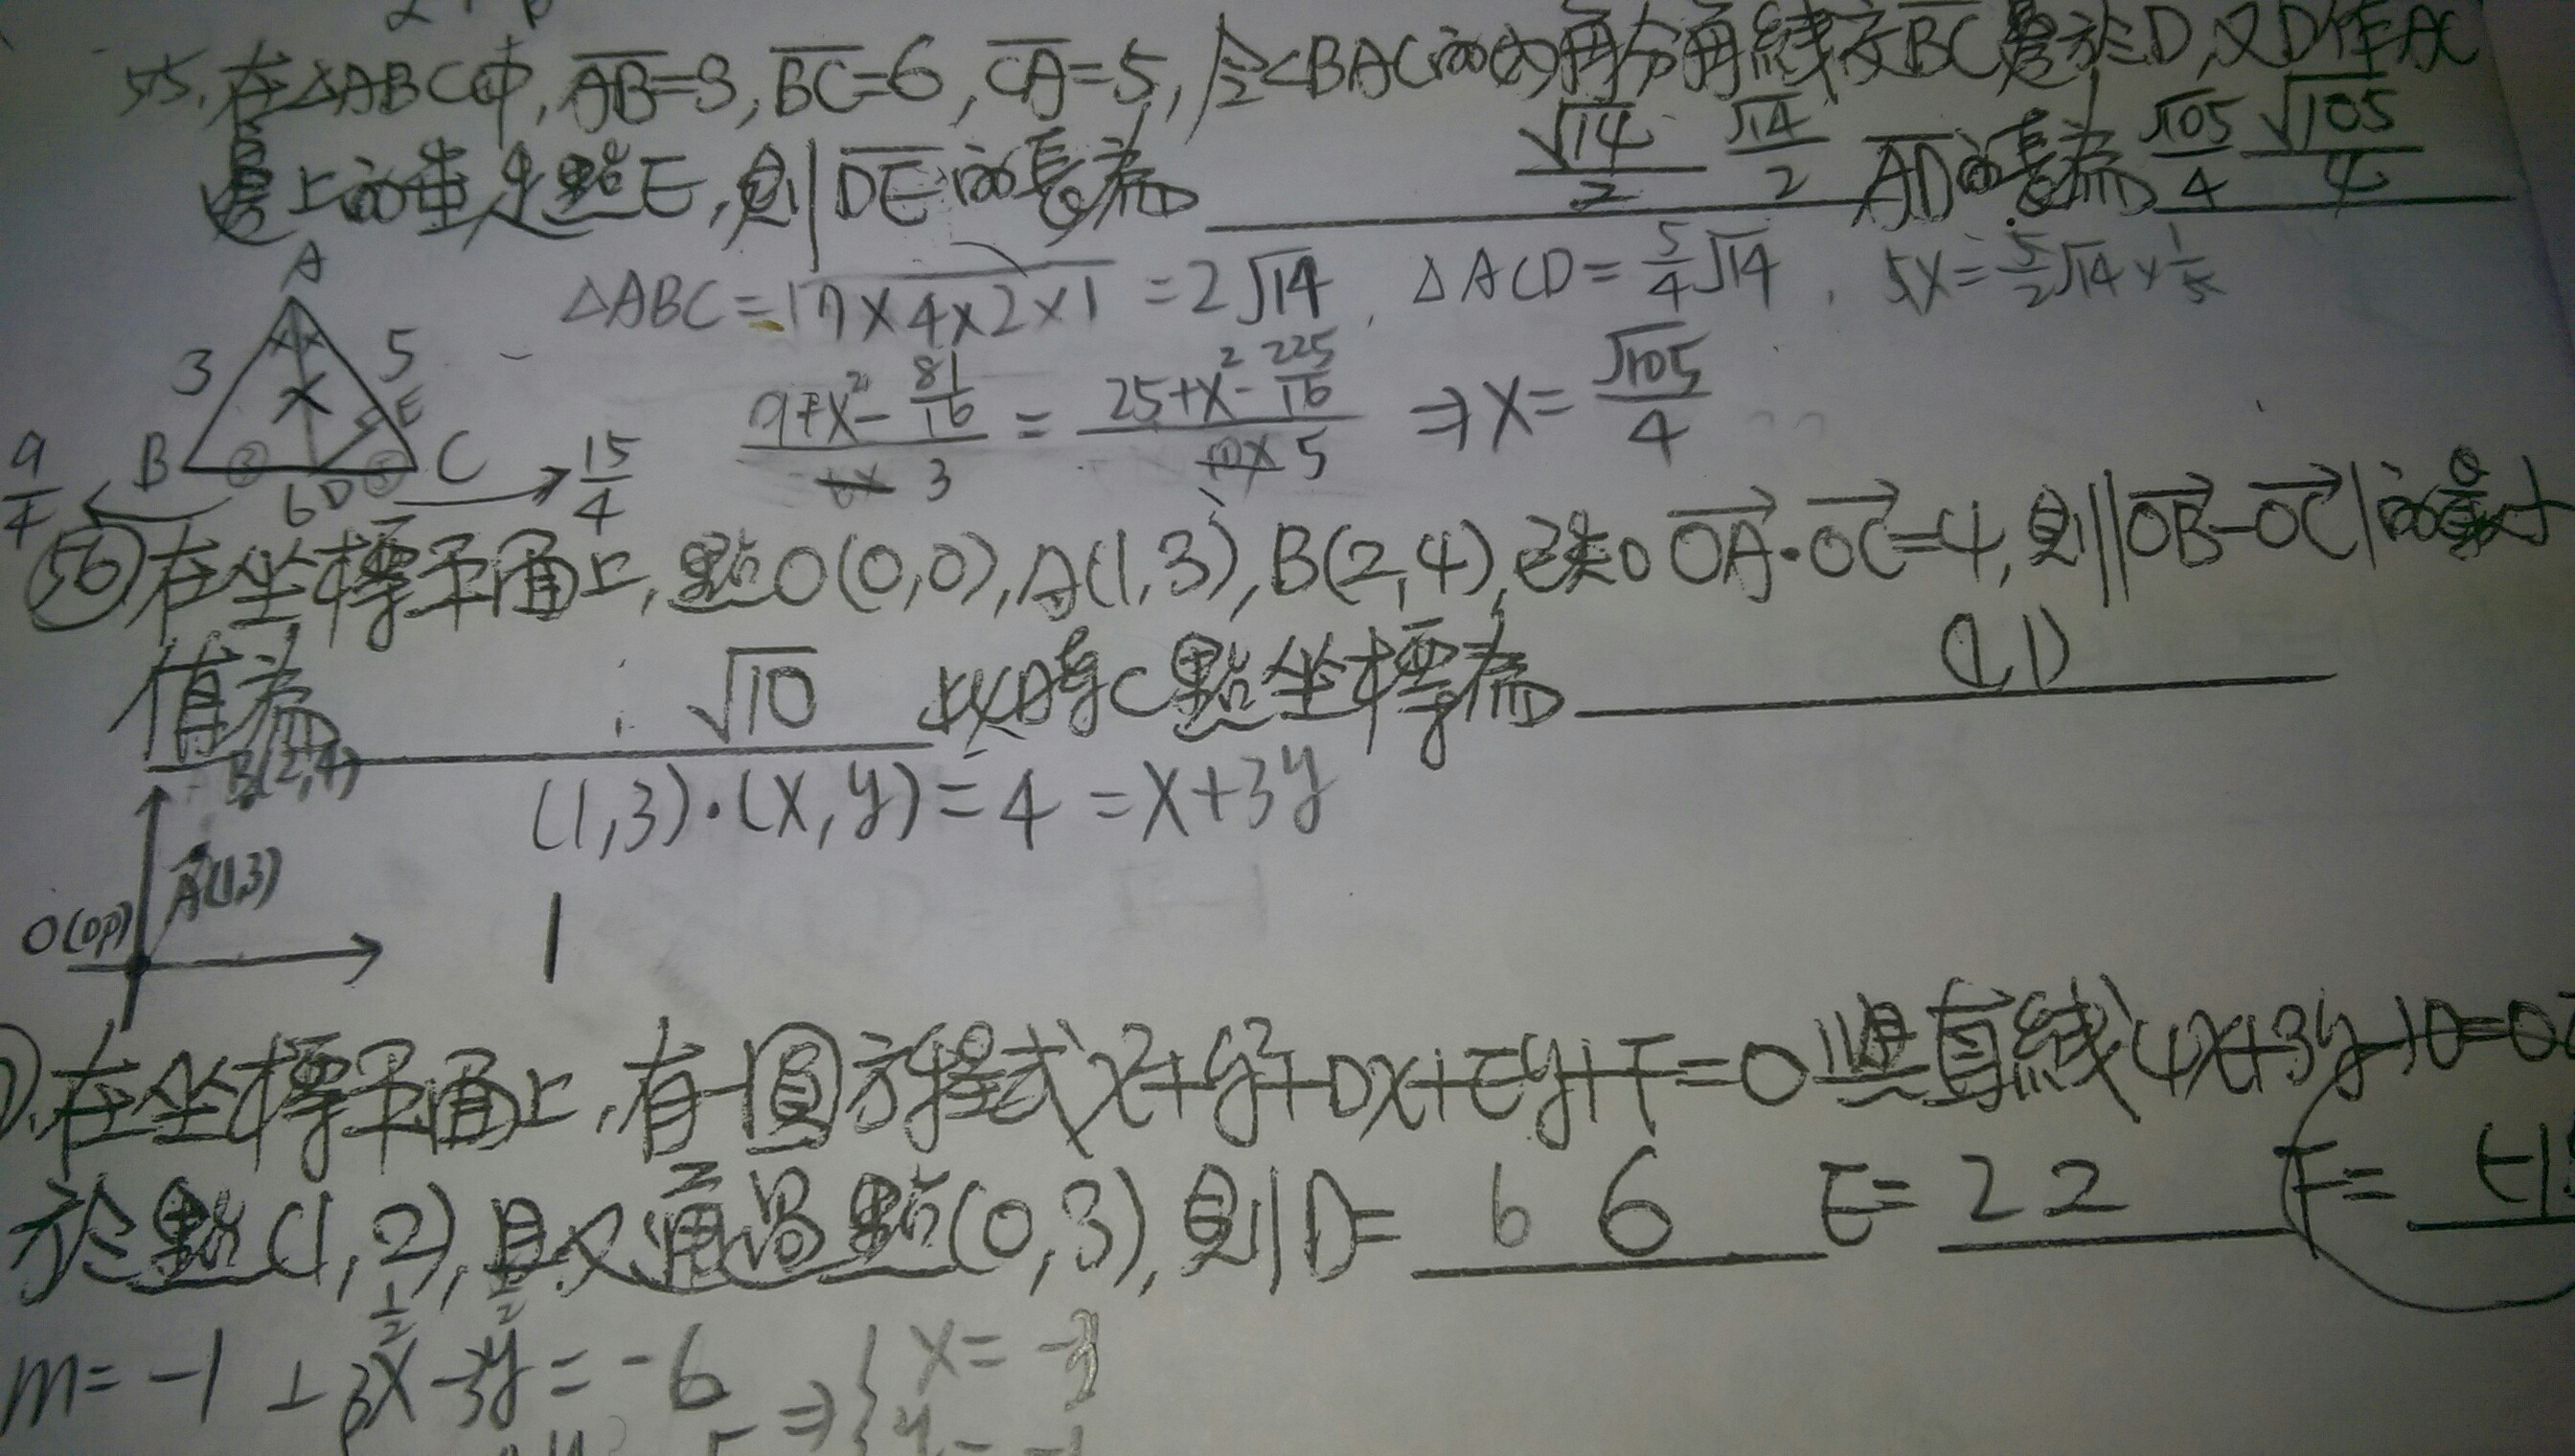 55. 在△ABC中, AB=3, BC=6, CA=5, ∠BAC的內角分角線交BC邊於D, 又D作AC
邊上的垂足點E, 則DE的長為 √14/2 √14/2 AD的長為 √105/4 √105/4
△ABC=√7×4×2×1 =2√14, △ACD=5/4√14, 5X=5/2√14×1/5
A
3 5
X
E
B C
3 5
6 D
9/4 15/4
9+X²-81/16 / 3 = 25+X²-225/16 / 5 ⇒X=√105/4
56 在坐標平面上, 點O(0,0), A(1,3), B(2,4), 已知OA·OC=4, 則|OB-OC|的最小
值為 √10 此時C點坐標為 (1,1)
B(2,4)
(1,3)·(X,y)=4 =X+3y
A(1,3)
O(0,0)
1
在坐標平面上, 有一圓方程式x²+y²+Dx+Ey+F=0與直線4x+3y-10=0
於點(1,2), 且又通過點(0,3), 則D= 6 6 E= 2 2 F=
m=-1 ⊥ 3X-3y=-6 ⇒{ X=-3